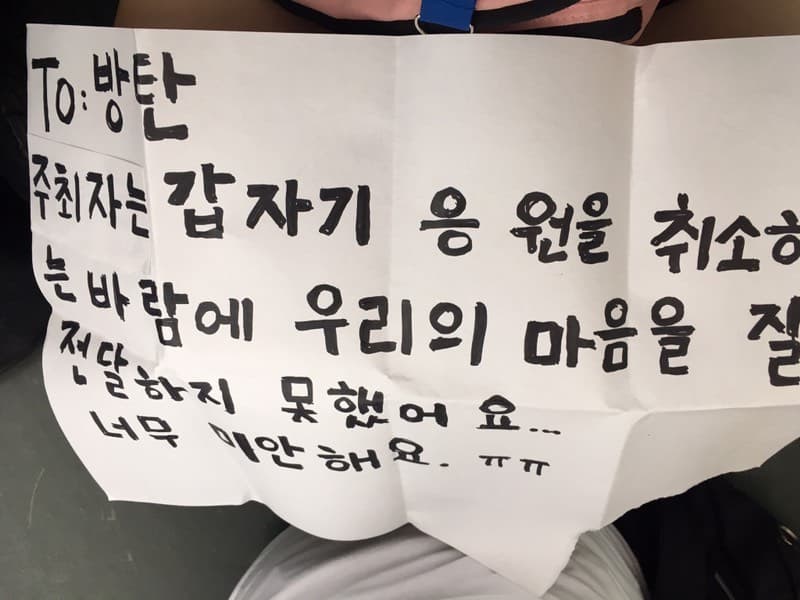 To: 방탄
주최자는 갑자기 응원을 취소하
는 바람에 우리의 마음을 잘
전달하지 못했어요...
너무 미안해요. ㅠㅠ